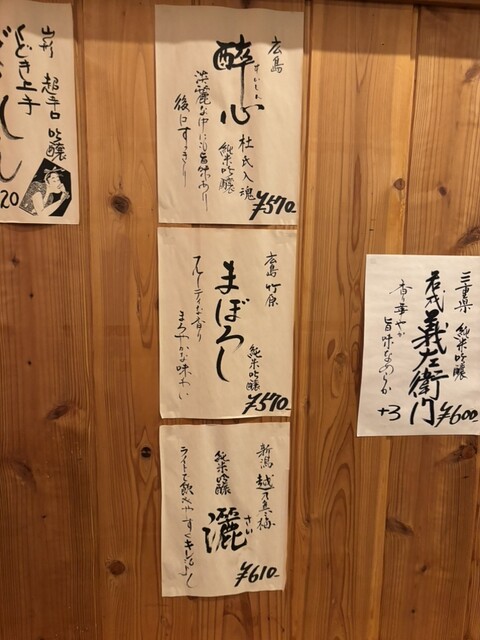 広島
酔心
すいしん
杜氏入魂
純米吟醸
淡麗な中にも旨味あり
後口すっきり
¥570-
広島 竹原
まぼろし
純米吟醸
フルーティな香り
まろやかな味わい
¥570-
新潟 越乃寒梅
純米吟醸
灑
さい
ライトで飲みやすくキレよし
¥610-
三重県 純米吟醸
義左衛門
香り華やか
旨味なめらか
+3
¥600-
山形 超辛口 吟醸
くどき上手
20